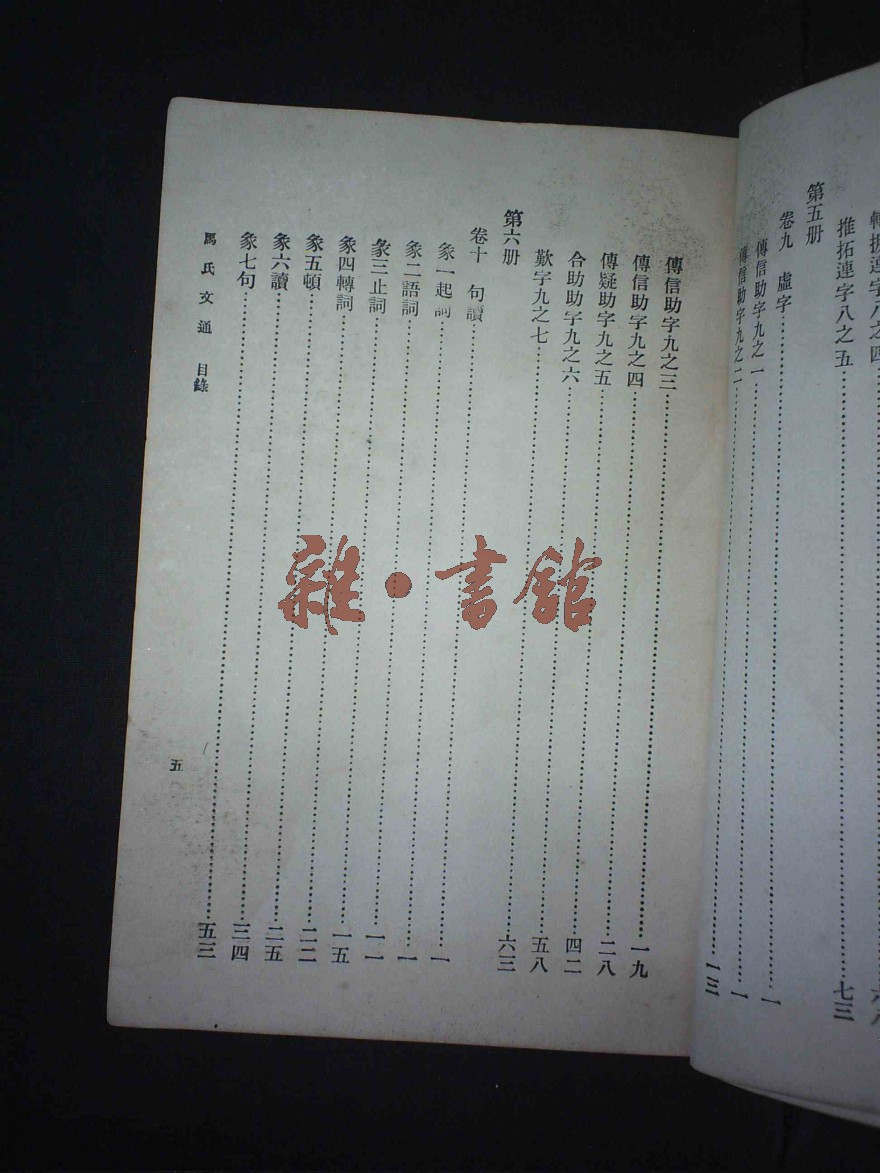 轉捩連字八之四
推拓連字八之五……七三
第五册
卷九 虛字……一
傳信助字九之一……一
傳信助字九之二……一三
傳信助字九之三……一九
傳信助字九之四……二八
傳疑助字九之五……四二
合助助字九之六……五八
歎字九之七……六三
第六册
卷十 句讀……一
彖一起詞……一
彖二語詞……一一
彖三止詞……一五
彖四轉詞……二二
彖五頓……二五
彖六讀……三四
彖七句……五三
馬氏文通 目錄
五
雜·書館